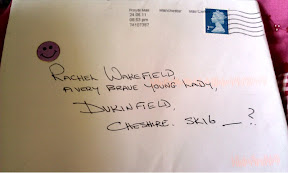 Royal Mail
24.06.11
RACHEL WAKEFIELD,
A VERY BRAVE YOUNG LADY,
DUKINFIELD,
CHESHIRE. SK16 __ ?